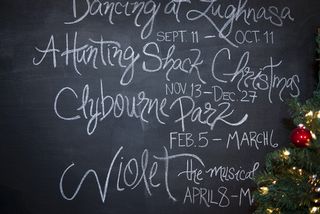 Dancing at Lughnasa
SEPT. 11 - OCT 11
A Hunting Shack Christmas
NOV 13-DEC. 27
Clybourne Park
FEB. 5 - MARCH 6
Violet the musical
APRIL 8-M